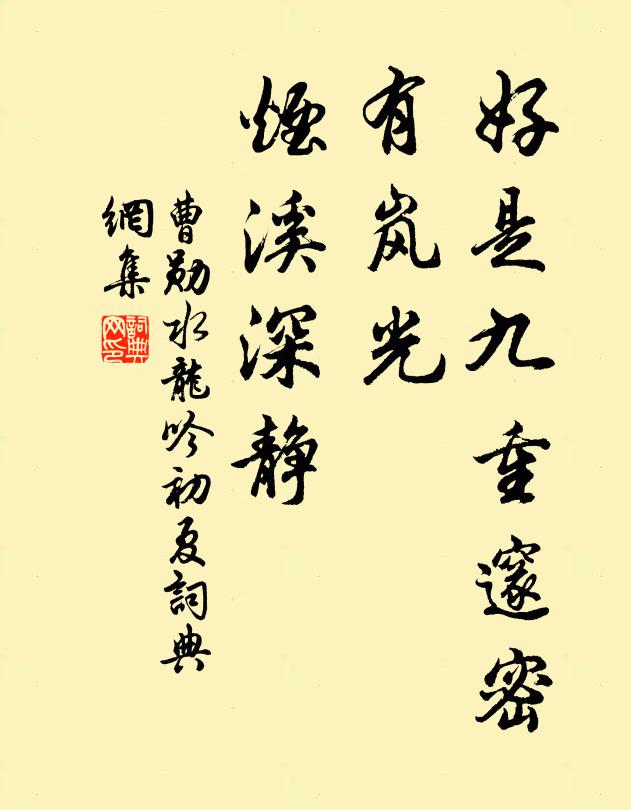 好是九重邃密
有岚光
煙溪深静
曹勋水龍吟初夏詞典
網集
詞典
网印